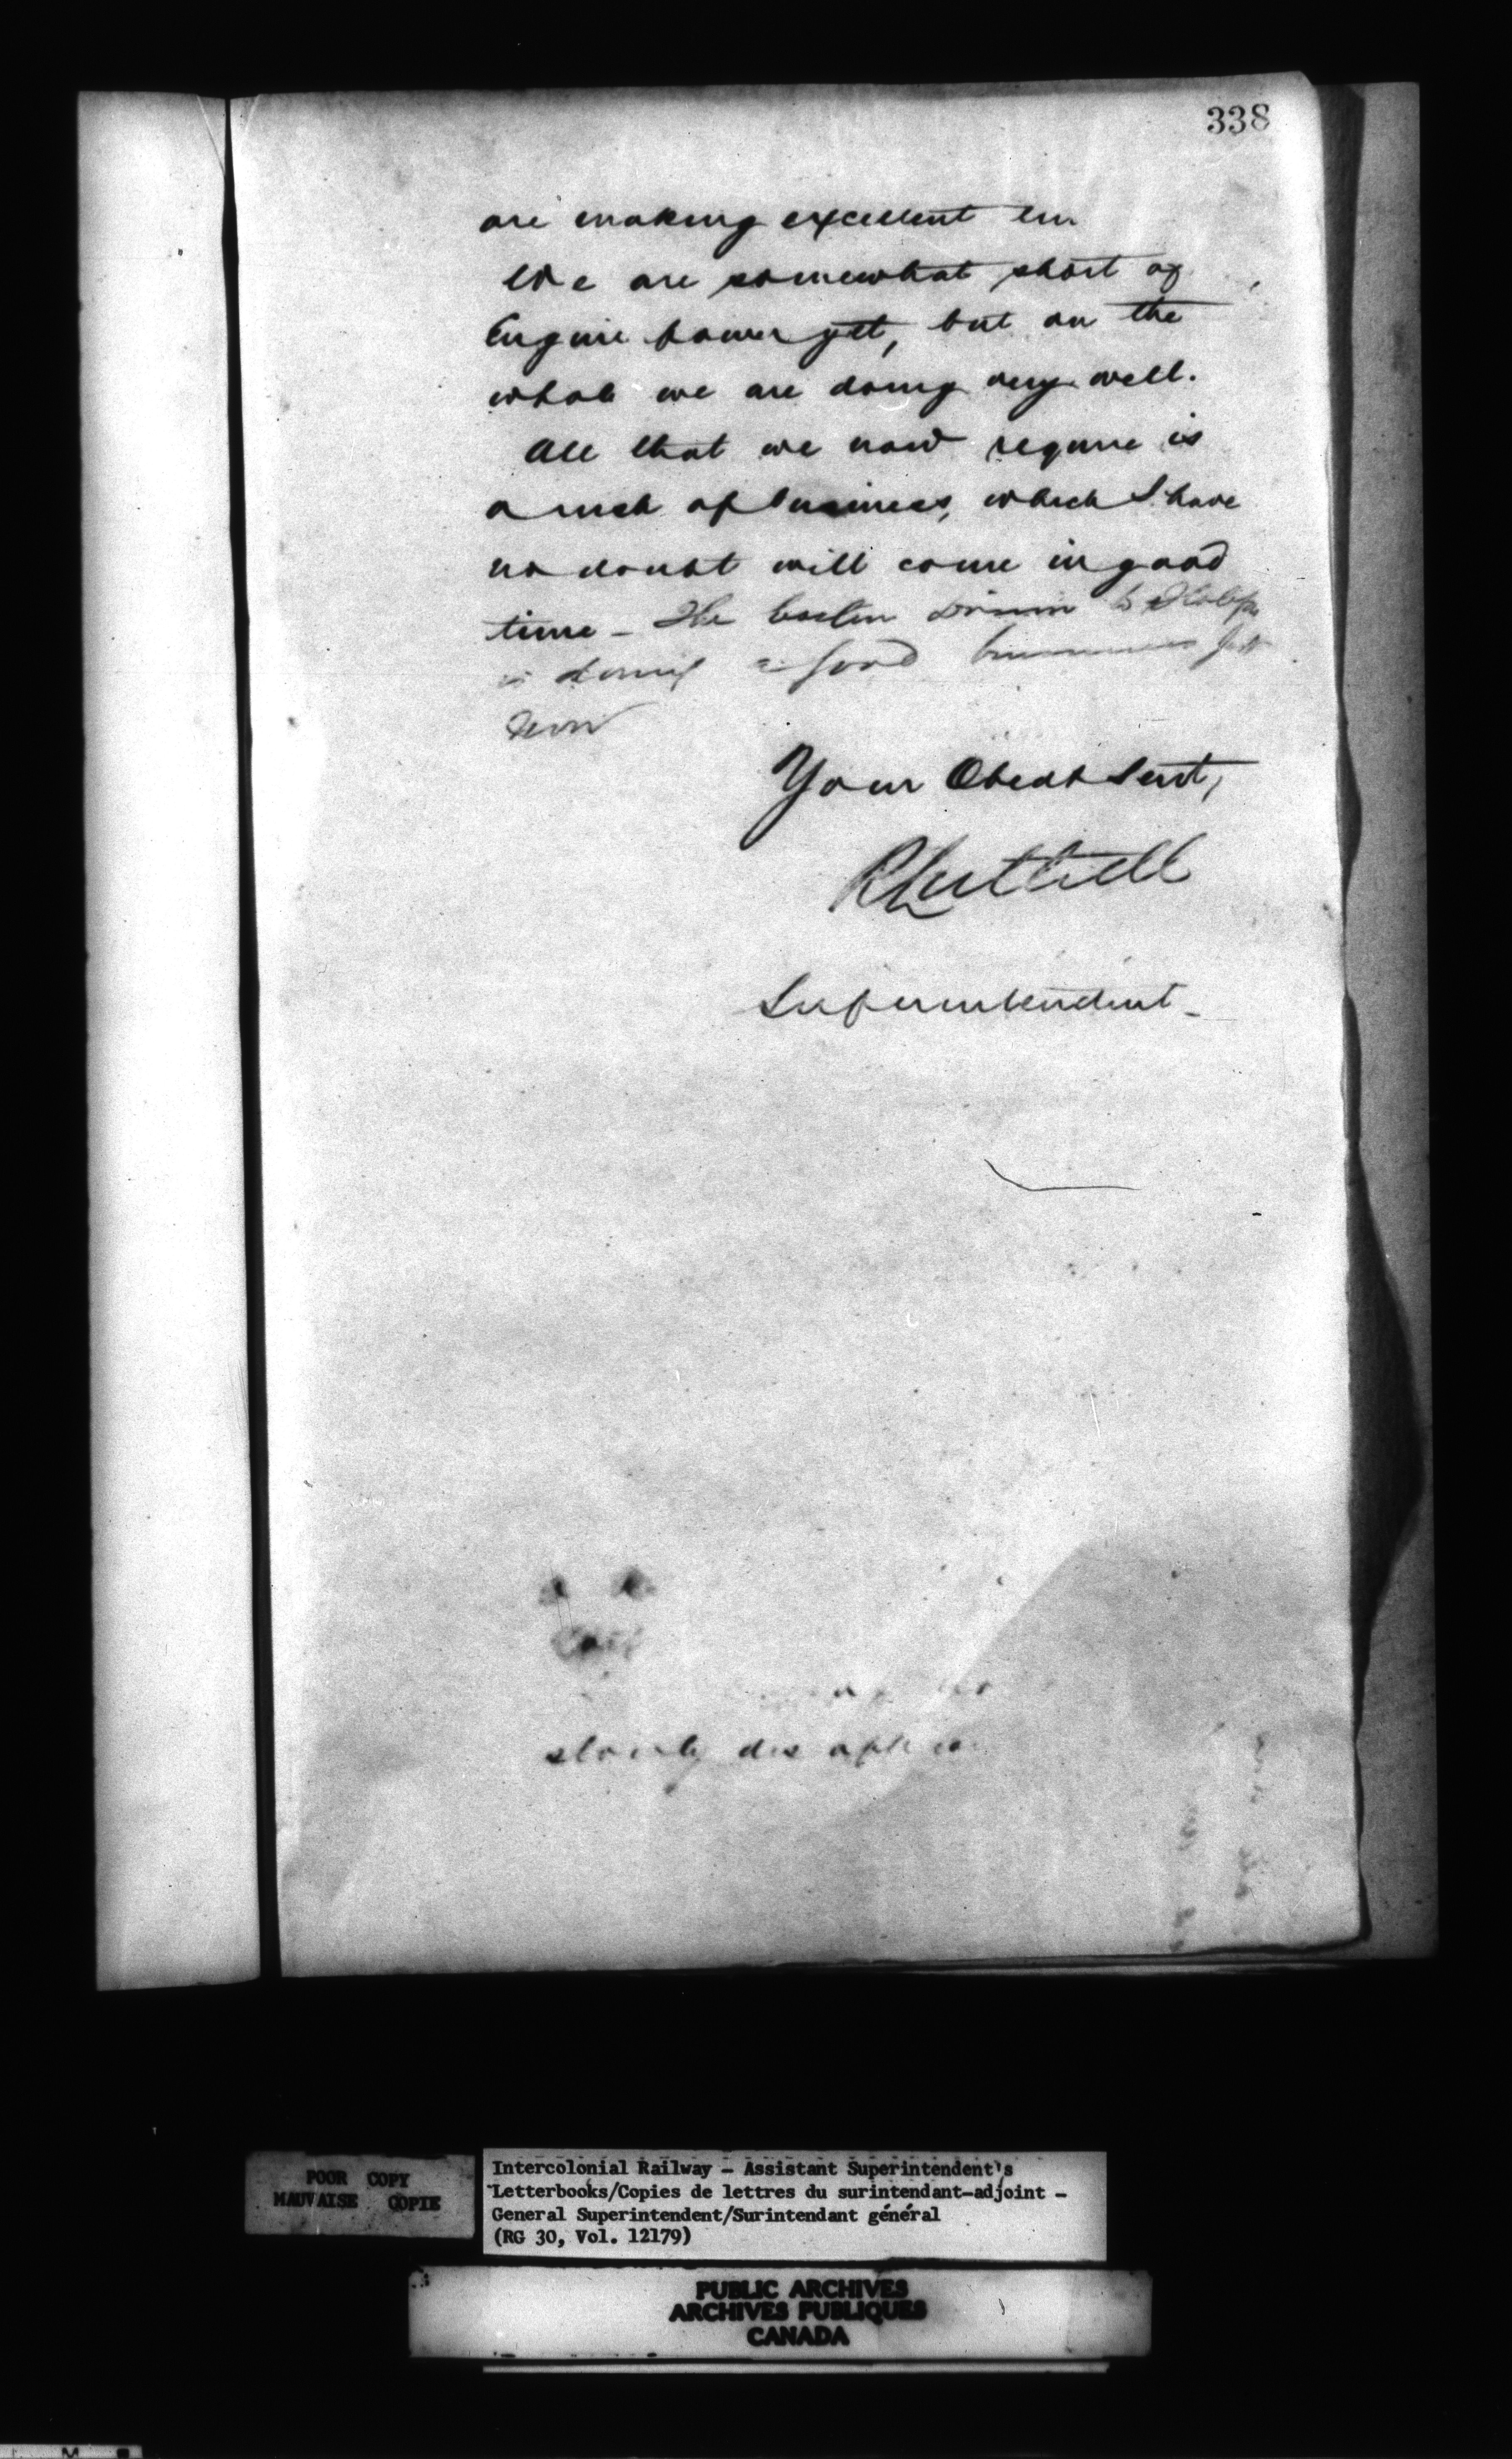 338
are making excellent
We are somewhat short of
Engine power yet, but on the
whole we are doing very well.
All that we now require is
a rush of business, which I have
no doubt will come in good
time - The
is doing a good business just
now
Your Obedt Servt,
R Luttrell
Superintendent -
slowly
POOR COPY
MAUVAISE COPIE
Intercolonial Railway - Assistant Superintendent's
Letterbooks/Copies de lettres du surintendant-adjoint -
General Superintendent/Surintendant général
(RG 30, Vol. 12179)
PUBLIC ARCHIVES
ARCHIVES PUBLIQUES
CANADA